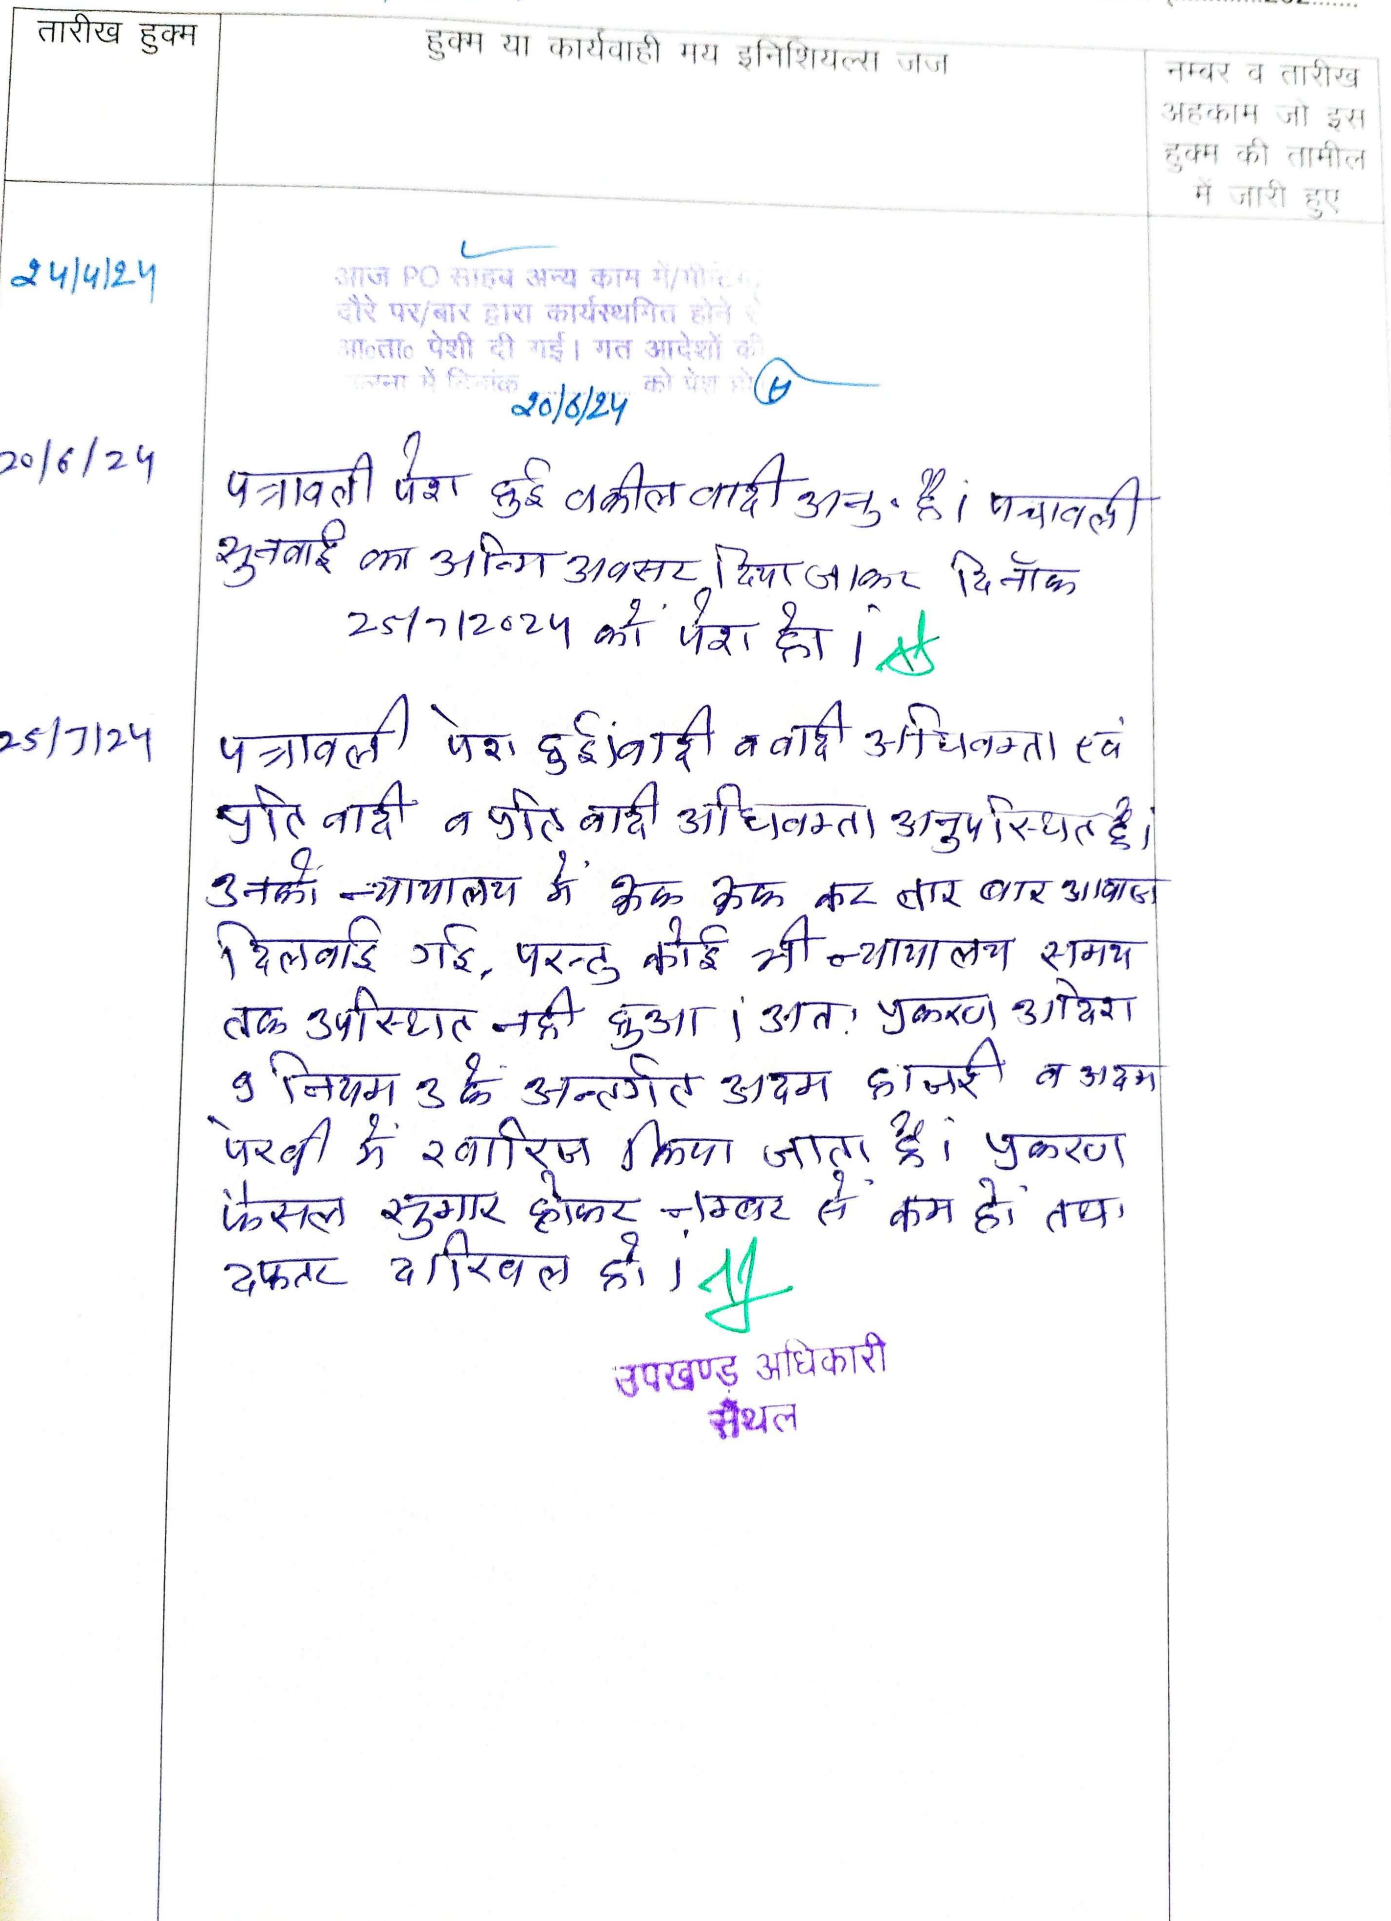 तारीख हुक्म
हुक्म या कार्यवाही मय इनिशियल्स जज
नम्बर व तारीख
अहकाम जो इस
हुक्म की तामील
में जारी हुए
24/4/24
आज PO साहब अन्य काम में/मीटिंग
दौरे पर/बार द्वारा कार्यस्थगित होने से
आ०ता० पेशी दी गई। गत आदेशों की
में दिनांक को पेश हो
20/6/24
20/6/24
पत्रावली पेश हुई वकील वादी अनु. है। पत्रावली
सुनवाई का अन्तिम अवसर दिया जाकर दिनाँक
25/7/2024 को पेश हो।
25/7/24
पत्रावली पेश हुई। वादी व वादी अधिवक्ता एवं
प्रतिवादी व प्रतिवादी अधिवक्ता अनुपस्थित है।
उनको न्यायालय में कर बार बार आवाज
दिलवाई गई, परन्तु कोई भी न्यायालय समय
तक उपस्थित नही हुआ। अतः प्रकरण आदेश
9 नियम 3 के अन्तर्गत अदम हाजरी व अदम
पेरवी में खारिज किया जाता है। प्रकरण
फैसल सुमार होकर नम्बर से कम हो तथा
दफतर दाखिल हो।
उपखण्ड अधिकारी
सैंथल